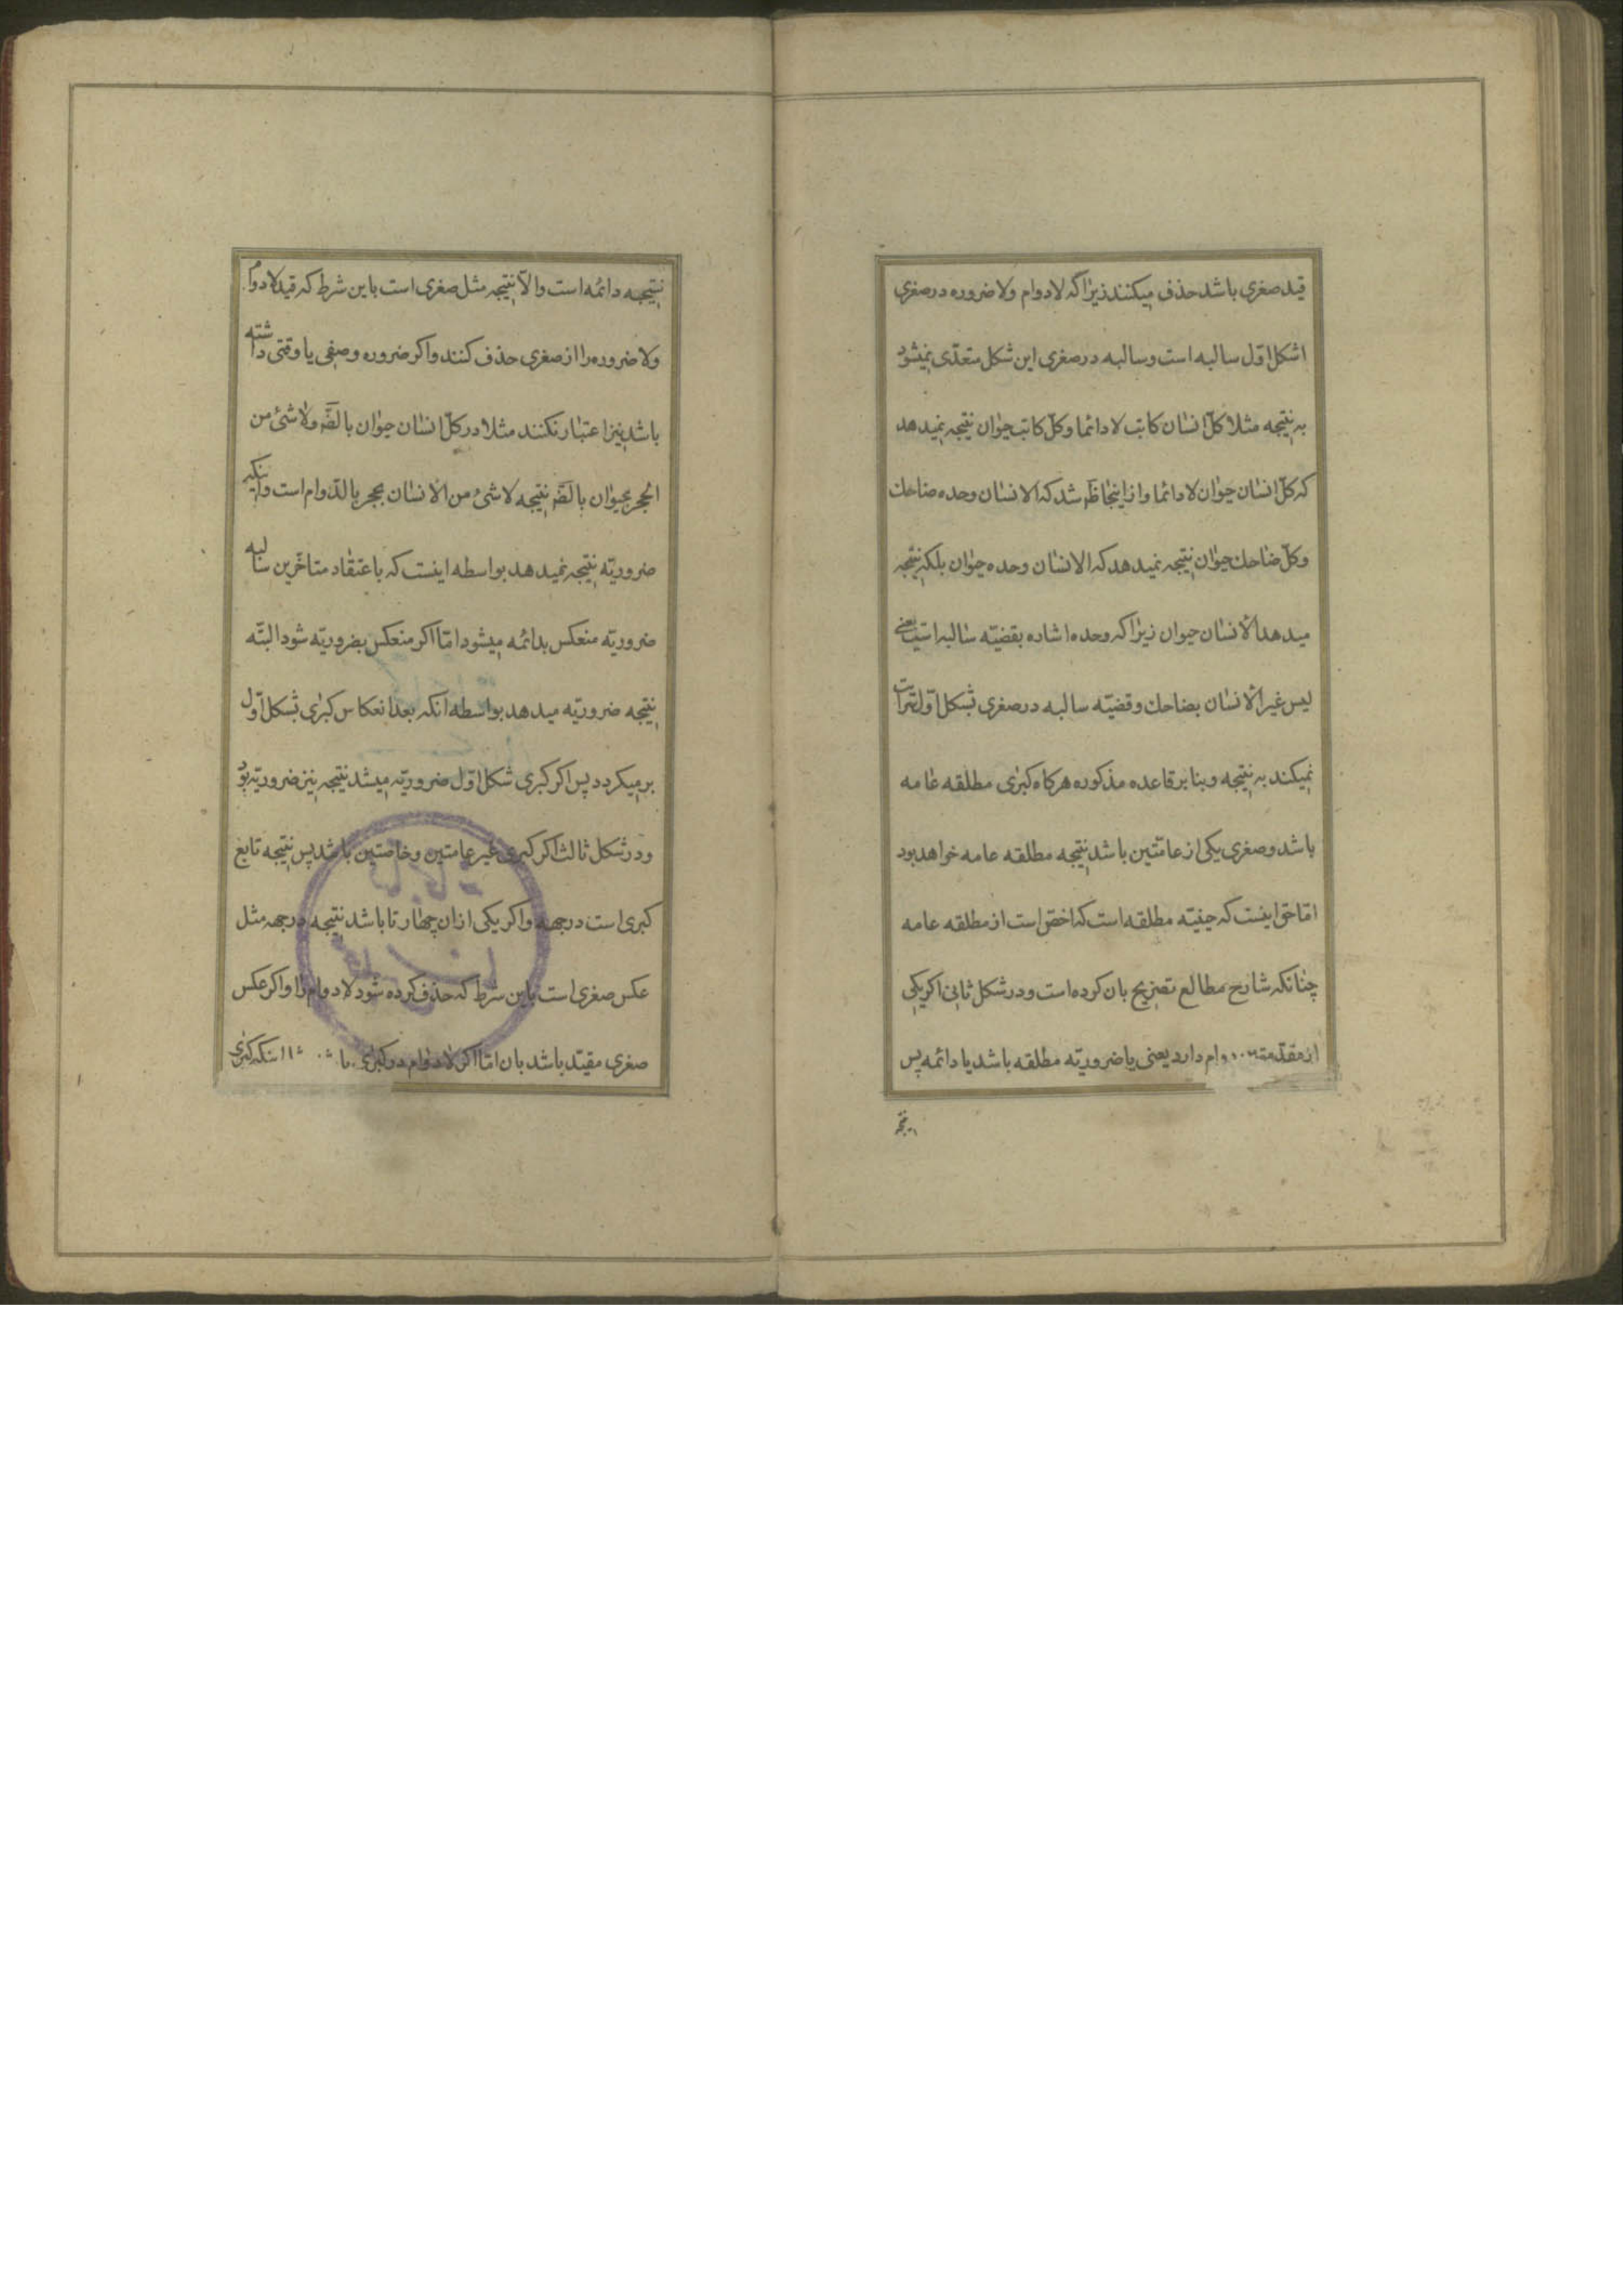 قید صغری باشد حذف میکنند زیرا که لا دوام ولا ضروره در صغری
اشکل اوّل سالبه است و سالبه در صغری این شکل متعدّی نمیشود
به نتیجه مثلا کلّ انسان کاتب لا دائما و کلّ کاتب حیوان نتیجه نمیدهد
که کلّ انسان حیوان لا دائما و از اینجا ظَ شد که الانسان وحده ضاحک
و کلّ ضاحک حیوان نتیجه نمیدهد که الانسان وحده حیوان بلکه نتیجه
میدهد الانسان حیوان زیرا که وحده اشاره بقضیّه سالبه است یعنی
لیس غیر الانسان بضاحک و قضیّه سالبه در صغری بشکل اوّل سرایت
نمیکند به نتیجه و بنا بر قاعده مذکوره هرکاه کبری مطلقه عامه
باشد و صغری یکی از عامّتین باشد نتیجه مطلقه عامه خواهد بود
امّا حق اینست که حینیّه مطلقه است که اخصّ است از مطلقه عامه
چنانکه شارح مطالع تصریح بان کرده است و در شکل ثانی اکر یکی
از مقدّمتین دوام دارد یعنی یا ضروریّه مطلقه باشد یا دائمه پس
نتیجه
نتیجه دائمه است والّا نتیجه مثل صغری است باین شرط که قید لا دوام
ولا ضروره را از صغری حذف کنند و اکر ضروره وصفی یا وقتی داشته
باشد نیز اعتبار نکنند مثلا در کلّ انسان حیوان بالضَّه ولا شئ من
الحجر بحیوان بالضَّه نتیجه لا شئ من الانسان بحجر بالدّوام است و اینکه
ضروریّه نتیجه نمیدهد بواسطه اینست که باعتقاد متاخّرین سالبه
ضروریّه منعکس بدائمه میشود امّا اکر منعکس بضروریّه شود البتّه
نتیجه ضروریّه میدهد بواسطه آنکه بعد انعکاس کبری بشکل اوّل
برمیکردد پس اکر کبری شکل اوّل ضروریّه میشد نتیجه نیز ضروریّه بود
و در شکل ثالث اکر کبری غیر عامتین و خاصتین باشد پس نتیجه تابع
کبری است در جهه و اکر یکی از ان چهار تا باشد نتیجه در جهه مثل
عکس صغری است باین شرط که حذف کرده شود لا دوام را و اکر عکس
صغری مقیّد باشد بان امّا اکر لا دوام در کبری اینکه کبری